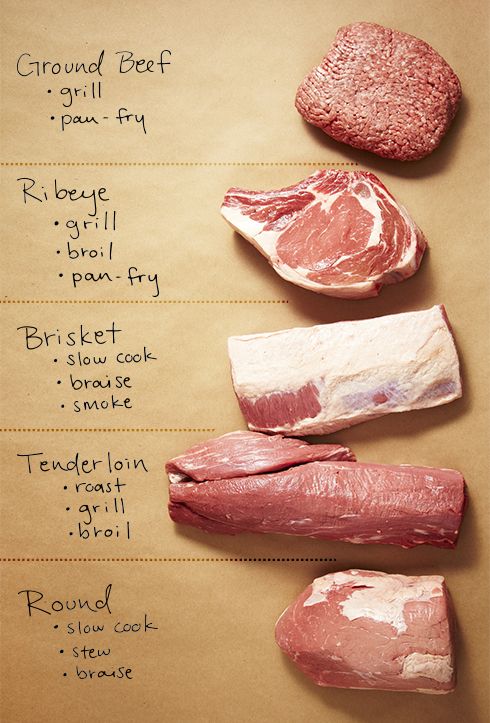 Ground Beef
• grill
• pan-fry
Ribeye
• grill
• broil
• pan-fry
Brisket
• slow cook
• braise
• smoke
Tenderloin
• roast
• grill
• broil
Round
• slow cook
• stew
• braise